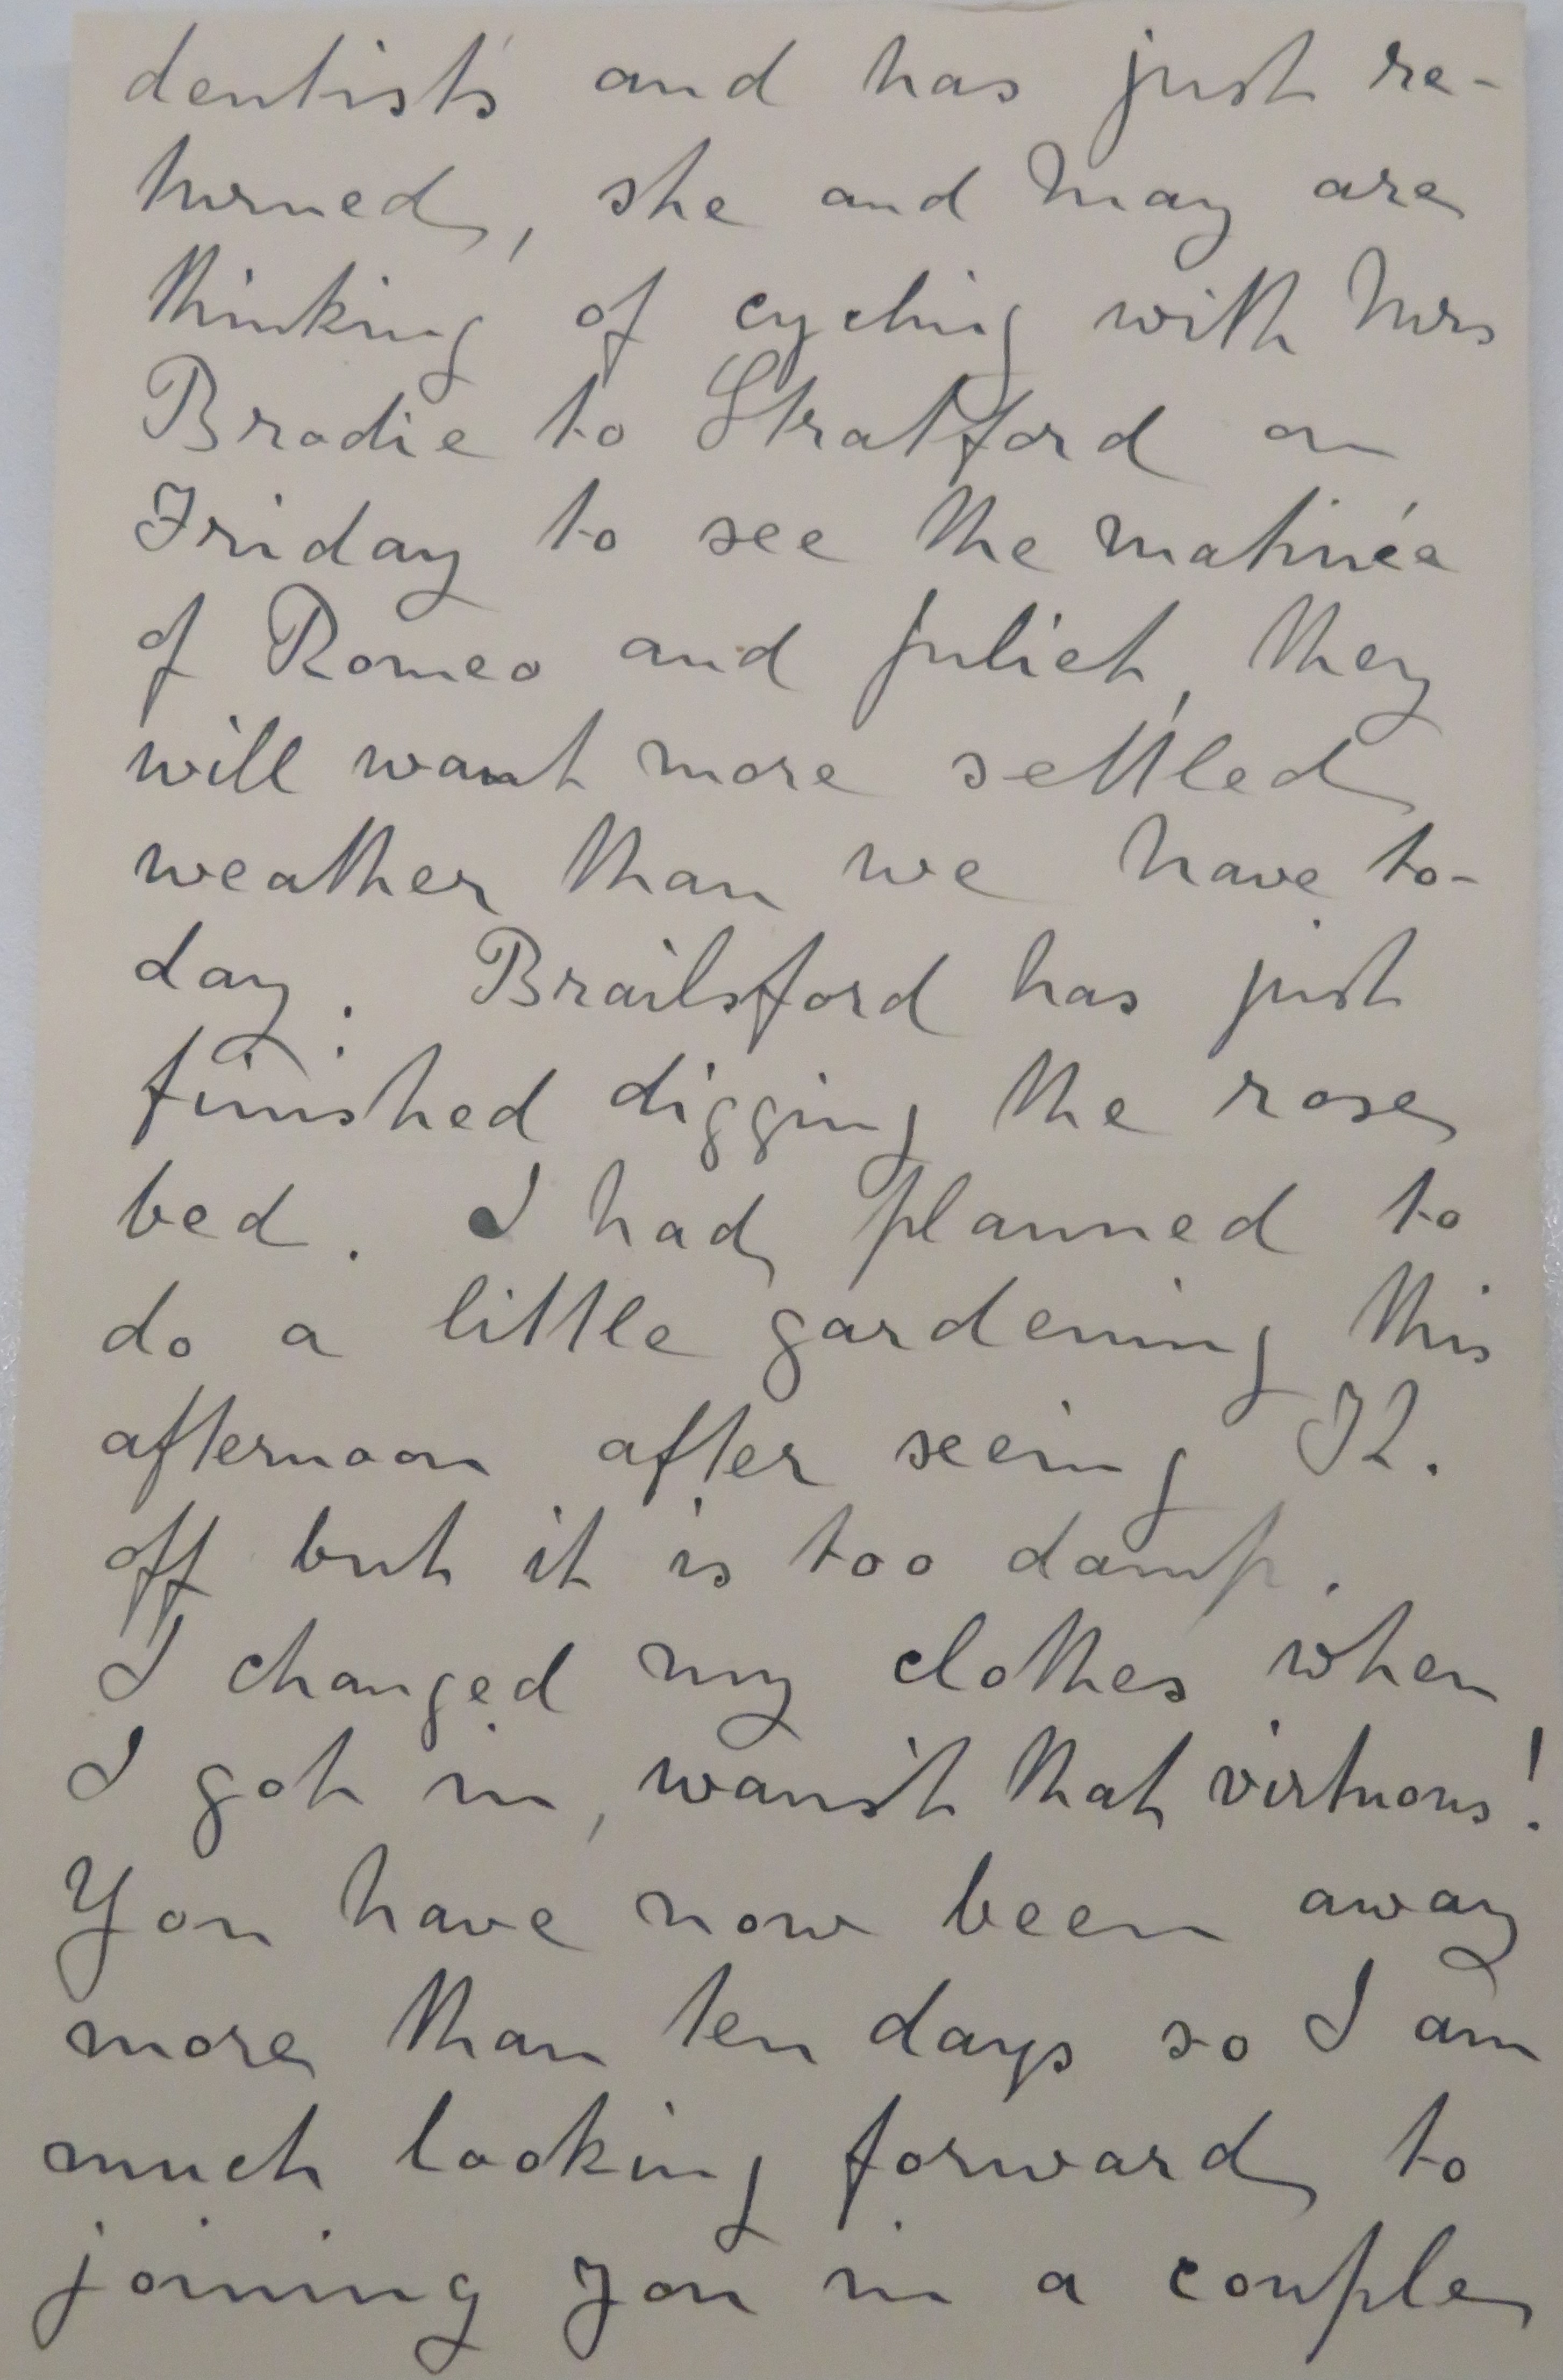 dentist's and has just re-
turned, she and May are
thinking of cycling with Mrs
Brodie to Stratford on
Friday to see the matinée
of Romeo and Juliet, they
will want more settled
weather than we have to-
day. Brailsford has just
finished digging the rose
bed. I had planned to
do a little gardening this
afternoon after seeing
off but it is too damp.
I changed my clothes when
I got in, wasn't that virtuous!
You have now been away
more than ten days so I am
much looking forward to
joining you in a couple